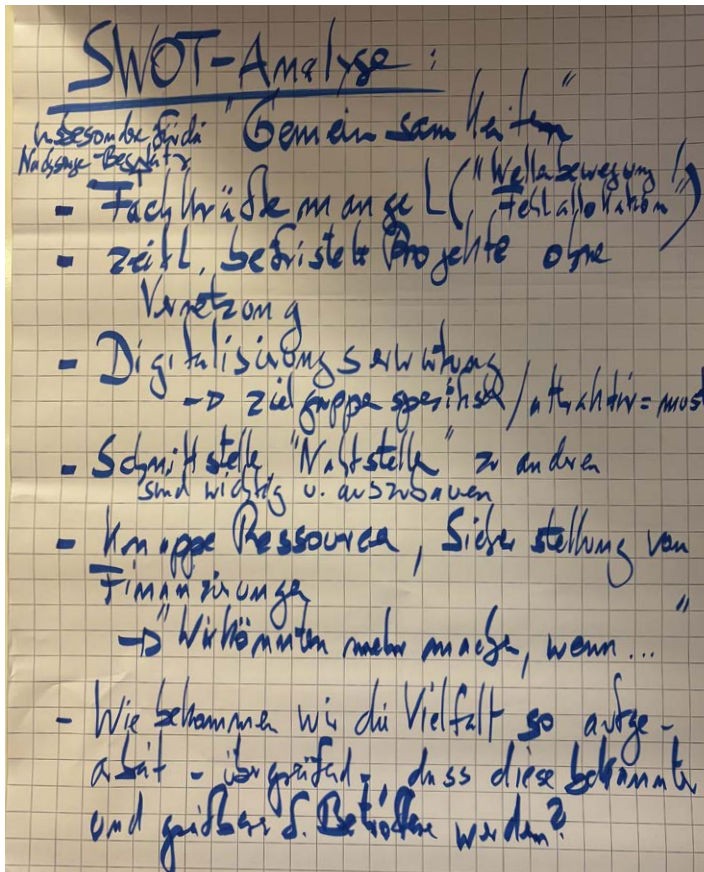 SWOT-Analyse:
"Gemeinsamkeiten"
insbesondere für die
Nachsorge-
- Fachkräftemangel ("Wellenbewegung /
Fehlallokation")
- zeitl. befristete Projekte ohne
Vernetzung
- Digitalisierungserwartung
-> zielgruppenspezifisch / attraktiv = must
- Schnittstelle "Nahtstelle" zu anderen
sind wichtig u. auszubauen
- Knappe Ressourcen, Sicherstellung von
Finanzierungen
-> "Wir könnten mehr machen, wenn..."
- Wie bekommen wir die Vielfalt so aufge-
arbeit - übergreifend -, dass diese bekannter
und greifbarer f. Betroffene werden?